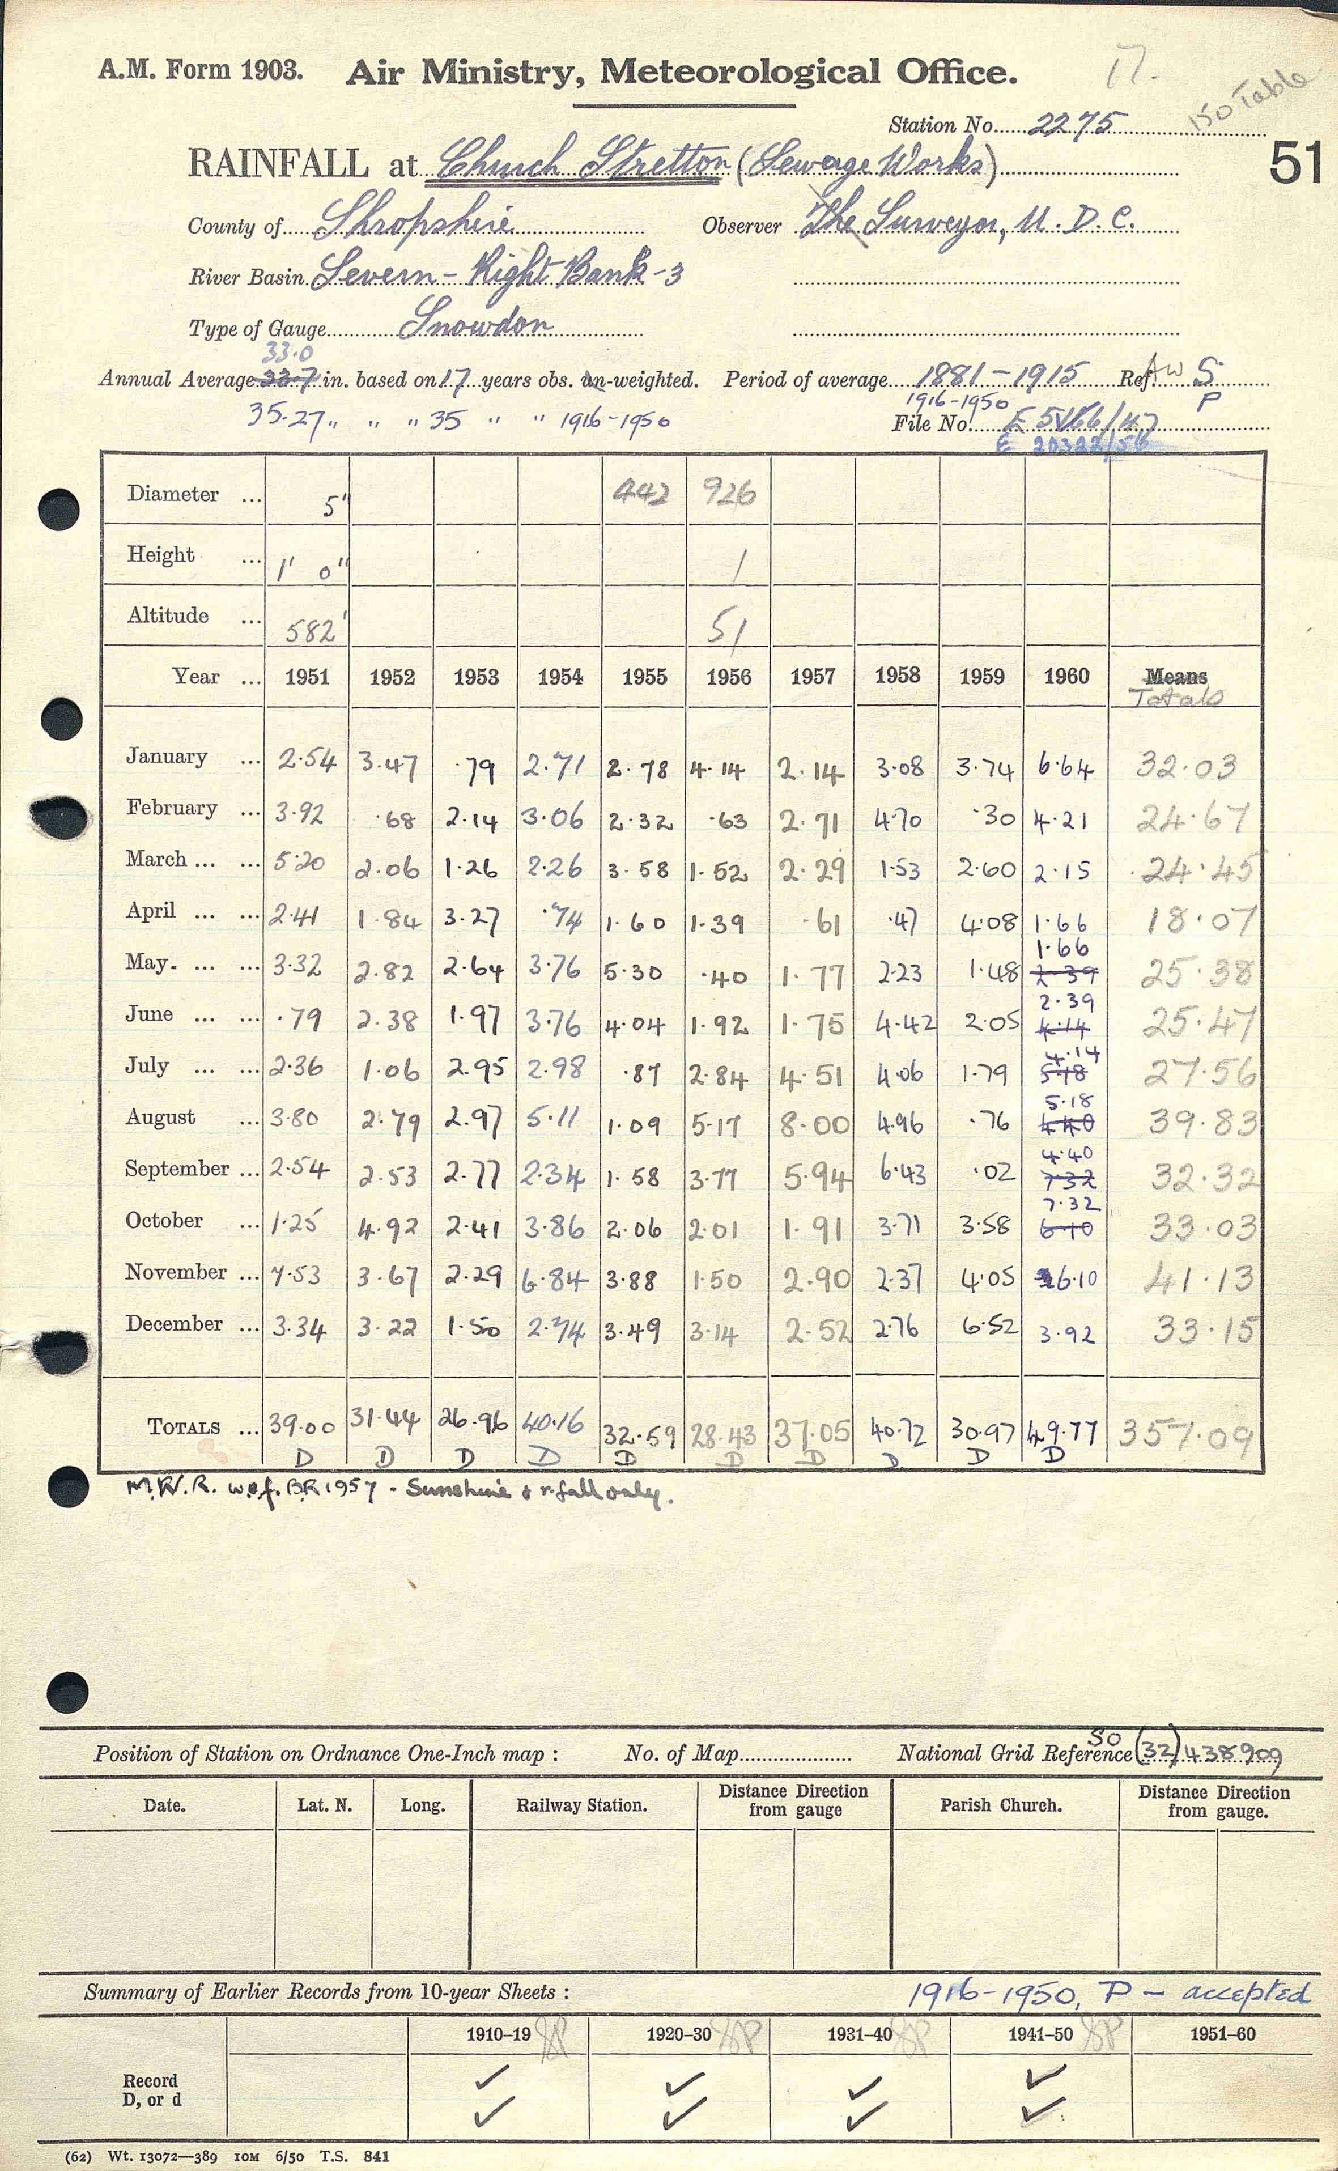 A.M. Form 1903. Air Ministry, Meteorological Office. 17.
150 Table
Station No. 2275
RAINFALL at Church Stretton (Sewage Works) 51
County of Shropshire Observer The Surveyor, U.D.C.
River Basin Severn - Right Bank - 3
Type of Gauge Snowdon
33.0
Annual Average 33.7 in. based on 17 years obs. un-weighted. Period of average 1881-1915 Ref. AW S
1916-1950 P
35.27 " " " 35 " " 1916-1950 File No. E 5466/47
E 20322/56
Diameter ... 5" 442 926
Height ... 1' 0" 1
Altitude ... 582' 51
Year ... 1951 1952 1953 1954 1955 1956 1957 1958 1959 1960 Means
Totals
January ... 2.54 3.47 .79 2.71 2.78 4.14 2.14 3.08 3.74 6.64 32.03
February ... 3.92 .68 2.14 3.06 2.32 .63 2.71 4.70 .30 4.21 24.67
March ... ... 5.20 2.06 1.26 2.26 3.58 1.52 2.29 1.53 2.60 2.15 24.45
April ... ... 2.41 1.84 3.27 .74 1.60 1.39 .61 .47 4.08 1.66 18.07
1.66
May. ... ... 3.32 2.82 2.64 3.76 5.30 .40 1.77 2.23 1.48 2.39 25.38
2.39
June ... ... .79 2.38 1.97 3.76 4.04 1.92 1.75 4.42 2.05 4.14 25.47
4.14
July ... ... 2.36 1.06 2.95 2.98 .87 2.84 4.51 4.06 1.79 5.18 27.56
5.18
August ... 3.80 2.79 2.97 5.11 1.09 5.17 8.00 4.96 .76 4.40 39.83
4.40
September ... 2.54 2.53 2.77 2.34 1.58 3.77 5.94 6.43 .02 7.32 32.32
7.32
October ... 1.25 4.92 2.41 3.86 2.06 2.01 1.91 3.71 3.58 6.10 33.03
November ... 7.53 3.67 2.29 6.84 3.88 1.50 2.90 2.37 4.05 6.10 41.13
December ... 3.34 3.22 1.50 2.74 3.49 3.14 2.52 2.76 6.52 3.92 33.15
TOTALS ... 39.00 31.44 26.96 40.16 32.59 28.43 37.05 40.72 30.97 49.77 357.09
D D D D D D D D D D
M.W.R. w.e.f. 1957 - Sunshine & r.fall only.
Position of Station on Ordnance One-Inch map : No. of Map National Grid Reference SO (32) 438909
Date. Lat. N. Long. Railway Station. Distance Direction from gauge Parish Church. Distance Direction from gauge.
Summary of Earlier Records from 10-year Sheets : 1916-1950, P - accepted
1910-19 1920-30 1931-40 1941-50 1951-60
Record ✓ ✓ ✓ ✓
D, or d ✓ ✓ ✓ ✓
(62) Wt. 13072—389 10M 6/50 T.S. 841